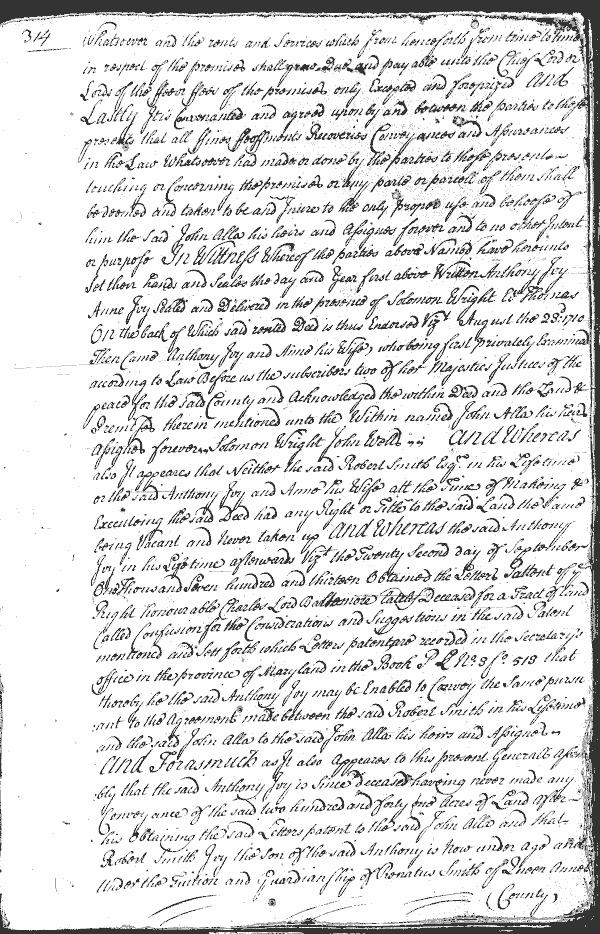 314
Whatsoever and the rents and Services which from henceforth from time to time
in respect of the premises shall grow Due and payable unto the Chief Lord or
Lords of the ffee or ffees of the premises only Excepted and foreprized And
Lastly It is Covenanted and agreed upon by and between the parties to these
presents that all ffines ffeoffments Recoveries Conveyances and Assureances
in the Law Whatsoever had made or done by the parties to these presents
touching or Concerning the premises or any parte or parcell of them shall
be deemed and taken to be and Inure to the only proper use and behoofe of
him the said John Alla his heirs and Assignes forever and to no other Intent
or purpose In Wittness Whereof the parties above Named have hereunto
set their hands and Seales the day and Year first above Written Anthony Joy
Anne Joy Sealed and Delivered in the presence of Solomon Wright Wm Thomas
On the back of Which said rented Deed is thus Endorsed Vizt August the 23d 1710
Then Came Anthony Joy and Anne his Wife, who being first privately Examined
according to Law Before us the subscribers two of her Majestys Justices of the
peace for the said County and Acknowledged the within Deed and the Land &
Premises therein mentioned unto the Within named John Alla his heirs
Assignes forever Solomon Wright John Wells And Whereas
also It appeares that Neither the said Robert Smith Esqr. in his Life time
or the said Anthony Joy and Anne his Wife att the Time of Makeing &
Executeing the said Deed had any Right or Title to the said Land the same
being Vacant and Never taken up And Whereas the said Anthony
Joy in his Life time afterwards Vizt the Twenty Second day of September
One Thousand Seven hundred and thirteen Obtained the Letters Pattent of ye
Right honourable Charles Lord Baltemore lately Deceased for a Tract of Land
Called Confusion for the Considerations and Suggestions in the said Patent
mentioned and Sett forth which Letters patent are recorded in the Secretary's
office in the province of Maryland in the Book P L No 3 fo. 519 that
thereby he the said Anthony Joy may be Enabled to Convey the Same pursu
ant to the Agreement made between the said Robert Smith in his Life time
and the said John Alla to the said John Alla his heirs and Assignes
And Forasmuch as It also Appeares to this present Generall Assem
bly that the said Anthony Joy is Since Deceased haveing never made any
Conveyance of the said two hundred and forty one Acres of Land after
his Obtaining the said Letters patent to the said John Alla and that
Robert Smith Joy the Son of the said Anthony is Now under age and
Under the Tuition and Guardianship of Renatus Smith of Queen Annes
(County)